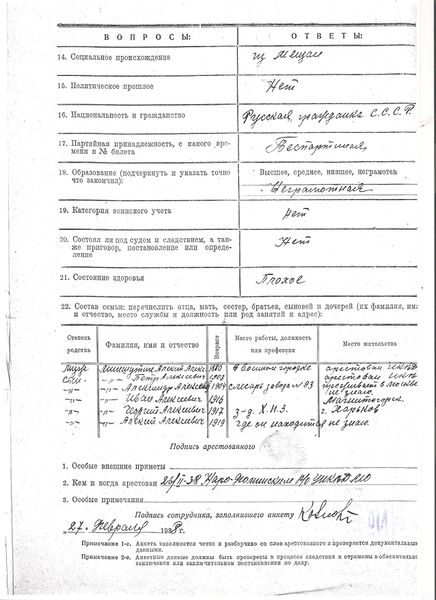 ВОПРОСЫ: ОТВЕТЫ:
14. Социальное происхождение из мещан
15. Политическое прошлое Нет
16. Национальность и гражданство Русская, гражданка С.С.С.Р.
17. Партийная принадлежность, с какого времени и № билета Беспартийная
18. Образование (подчеркнуть и указать точно что закончил): Высшее, среднее, низшее, неграмотен
Неграмотная
19. Категория воинского учета нет
20. Состоял ли под судом и следствием, а также приговор, постановление или определение Нет
21. Состояние здоровья Плохое
22. Состав семьи: перечислить отца, мать, сестер, братьев, сыновей и дочерей (их фамилия, имя
и отчество, место службы и должность или род занятий и адрес):
Степень родства Фамилия, имя и отчество Возраст Место работы, должность или профессия Место жительства
муж Алексей 1880 в военном городке арестован
сын -"- Петр Алексеевич арестован
-"- -"- Александр Алексеев 1904 слесарь завода № 93 проживает в Москве
не знаю.
-"- -"- Иван Алексеевич 1916 Магнитогорск.
-"- -"- Георгий Алексеевич 1917 з-д. Х.П.З. г. Харьков
-"- -"- Алексей Алексеевич 1919 где он находится не знаю.
Подпись арестованного
1. Особые внешние приметы
2. Кем и когда арестован 25/II-38 Наро-Фоминским Р/О УНКВД МО
3. Особые примечания
Подпись сотрудника, заполнившего анкету
„27" Февраля 1938 г.
Примечание 1-е. Анкета заполняется четко и разборчиво со слов арестованного и проверяется документальны
данными.
Примечание 2-е. Анкетные данные должны быть проверены в процессе следствия и отражены в обвинительно
заключении или заключительном постановлении по делу.